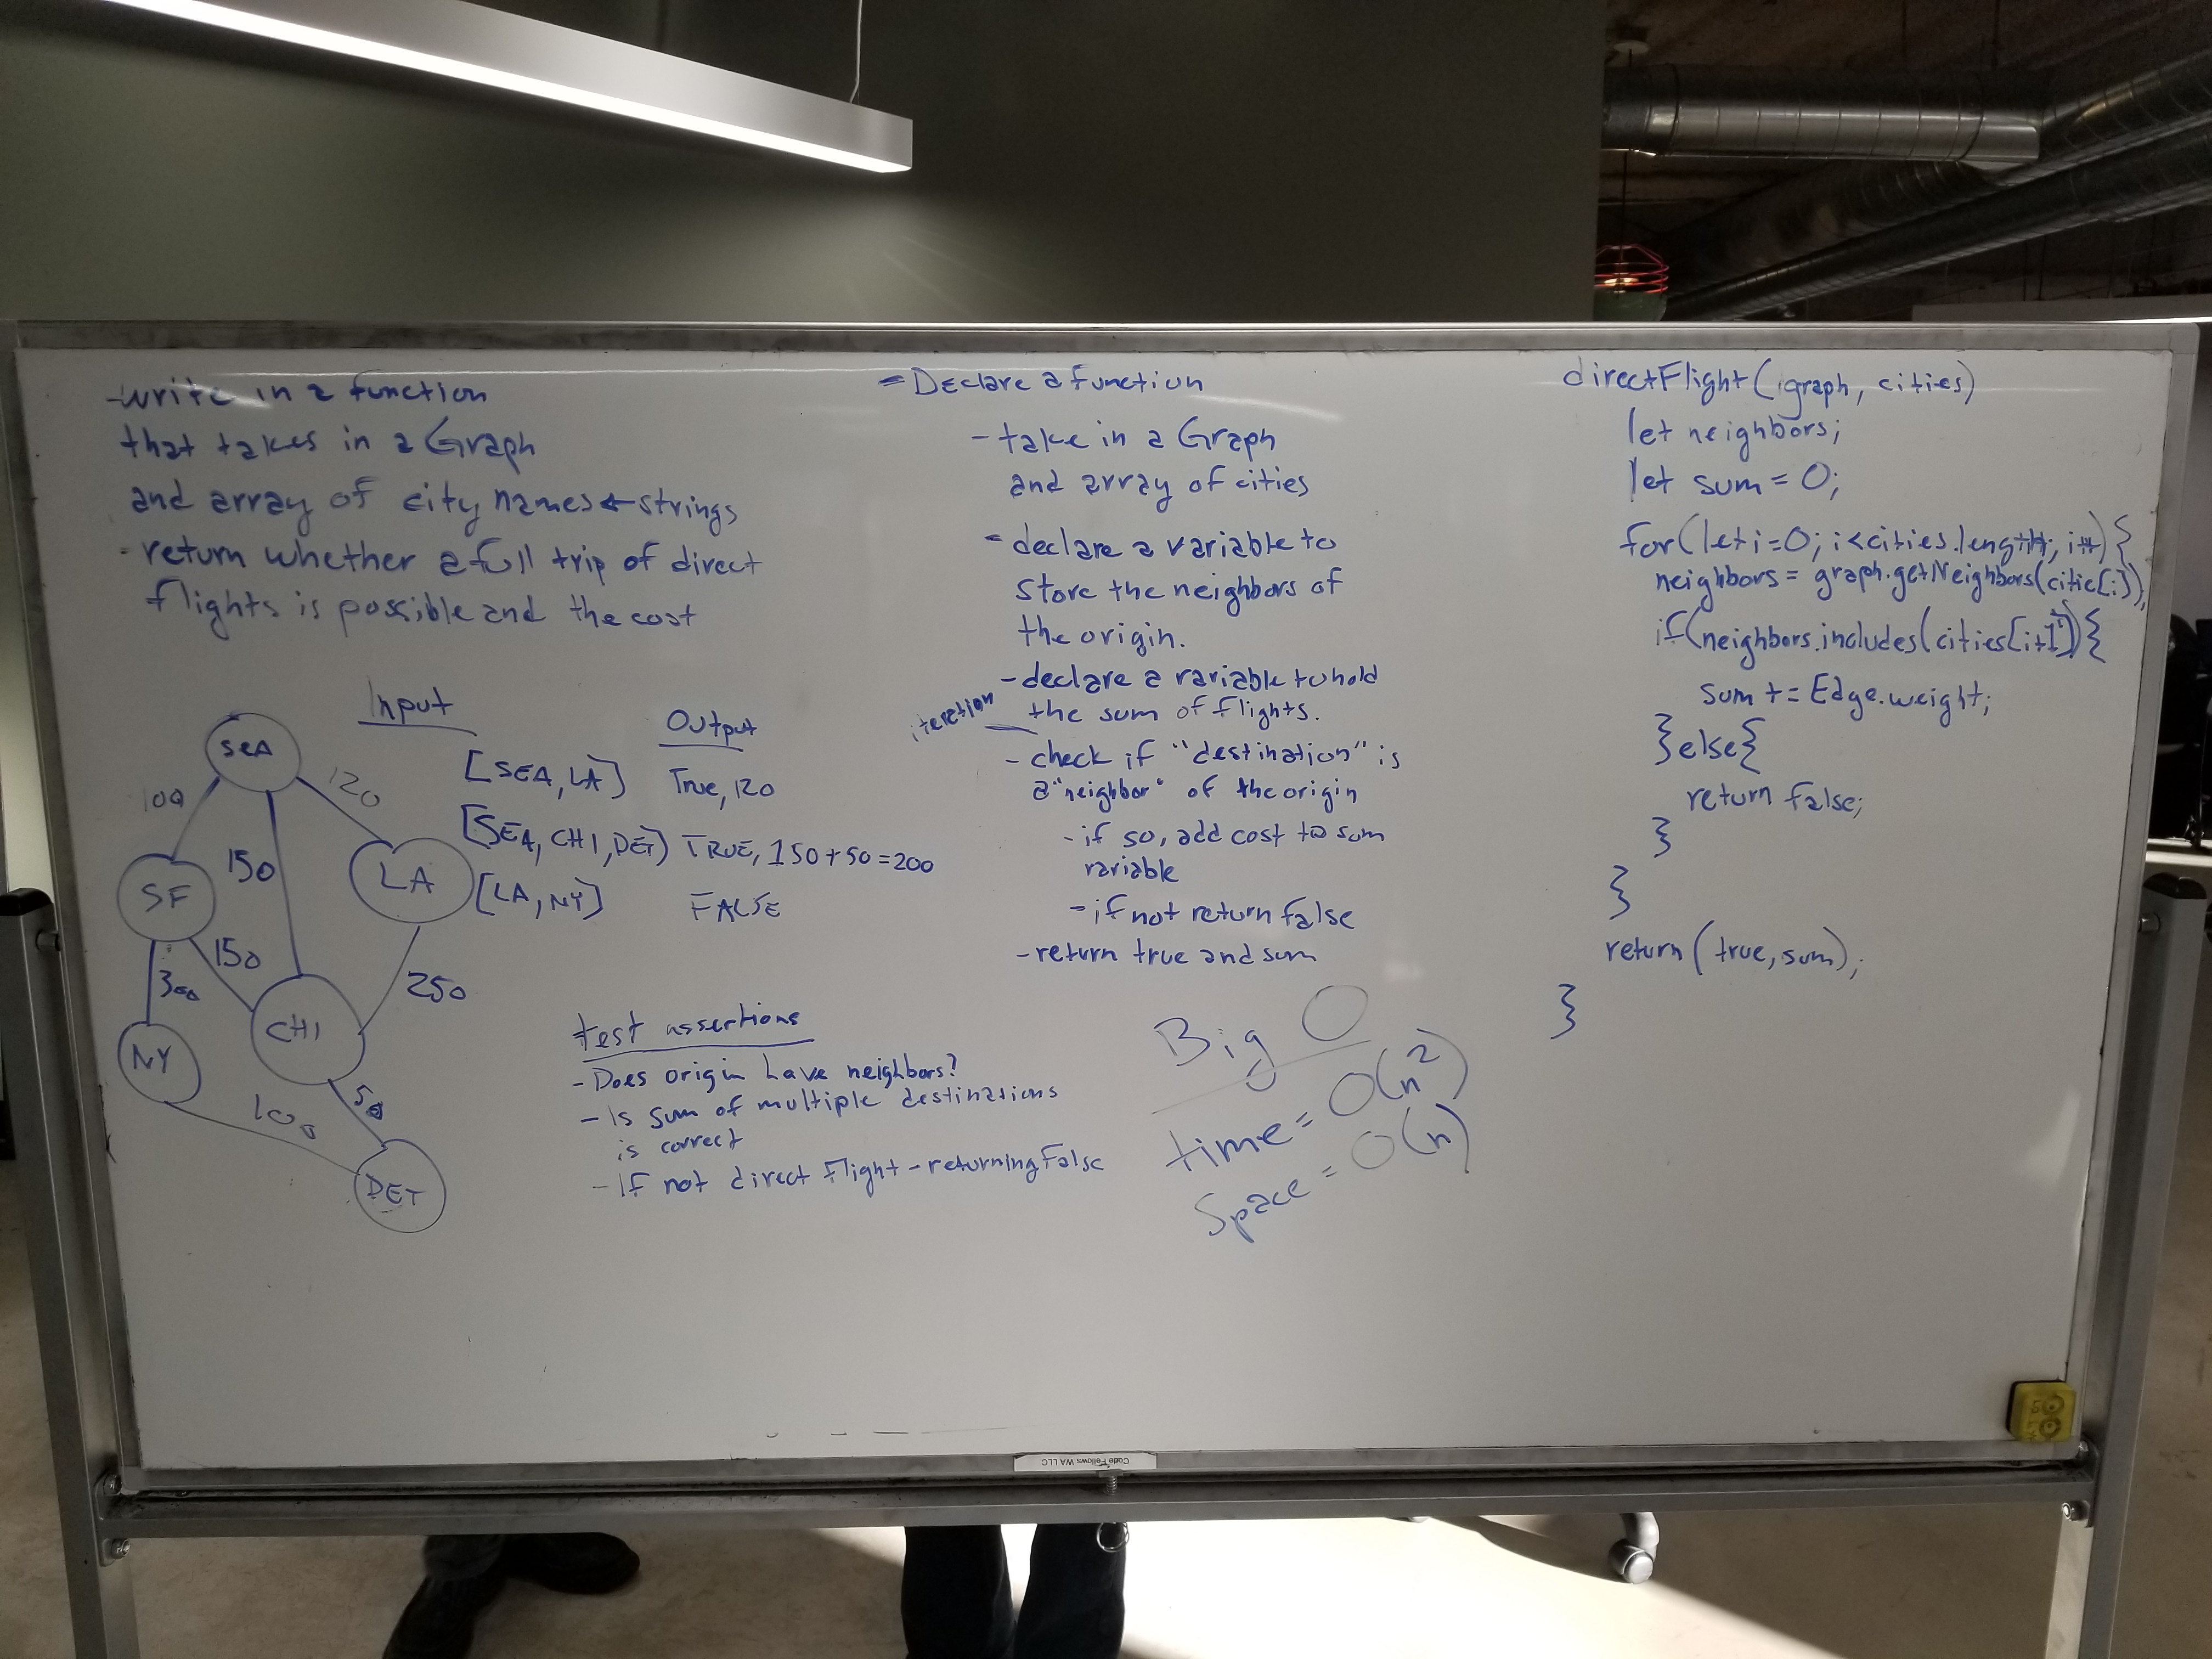 -Write in a function
that takes in a Graph
and array of city names ← strings
- return whether a full trip of direct
flights is possible and the cost
Input
Output
[SEA, LA]
True, 120
[SEA, CHI, DET]
TRUE, 150+50=200
[LA, NY]
FALSE
SEA
100
120
150
SF
LA
150
300
250
CHI
NY
50
100
DET
test assertions
- Does origin have neighbors?
- Is sum of multiple destinations
is correct
- If not direct flight - returning False
- Declare a function
- take in a Graph
and array of cities
- declare a variable to
store the neighbors of
the origin.
- declare a variable to hold
the sum of flights.
iteration
- check if "destination" is
a "neighbor" of the origin
- if so, add cost to sum
variable
- if not return false
- return true and sum
Big O
time = O(n²)
Space = O(n)
directFlight(graph, cities)
let neighbors;
let sum = 0;
for(let i=0; i<cities.length; i++){
neighbors = graph.getNeighbors(citie[i]);
if(neighbors.includes(cities[i+1]){
sum += Edge.weight;
}else{
return false;
}
}
return (true, sum);
}
Code Fellows WA LLC